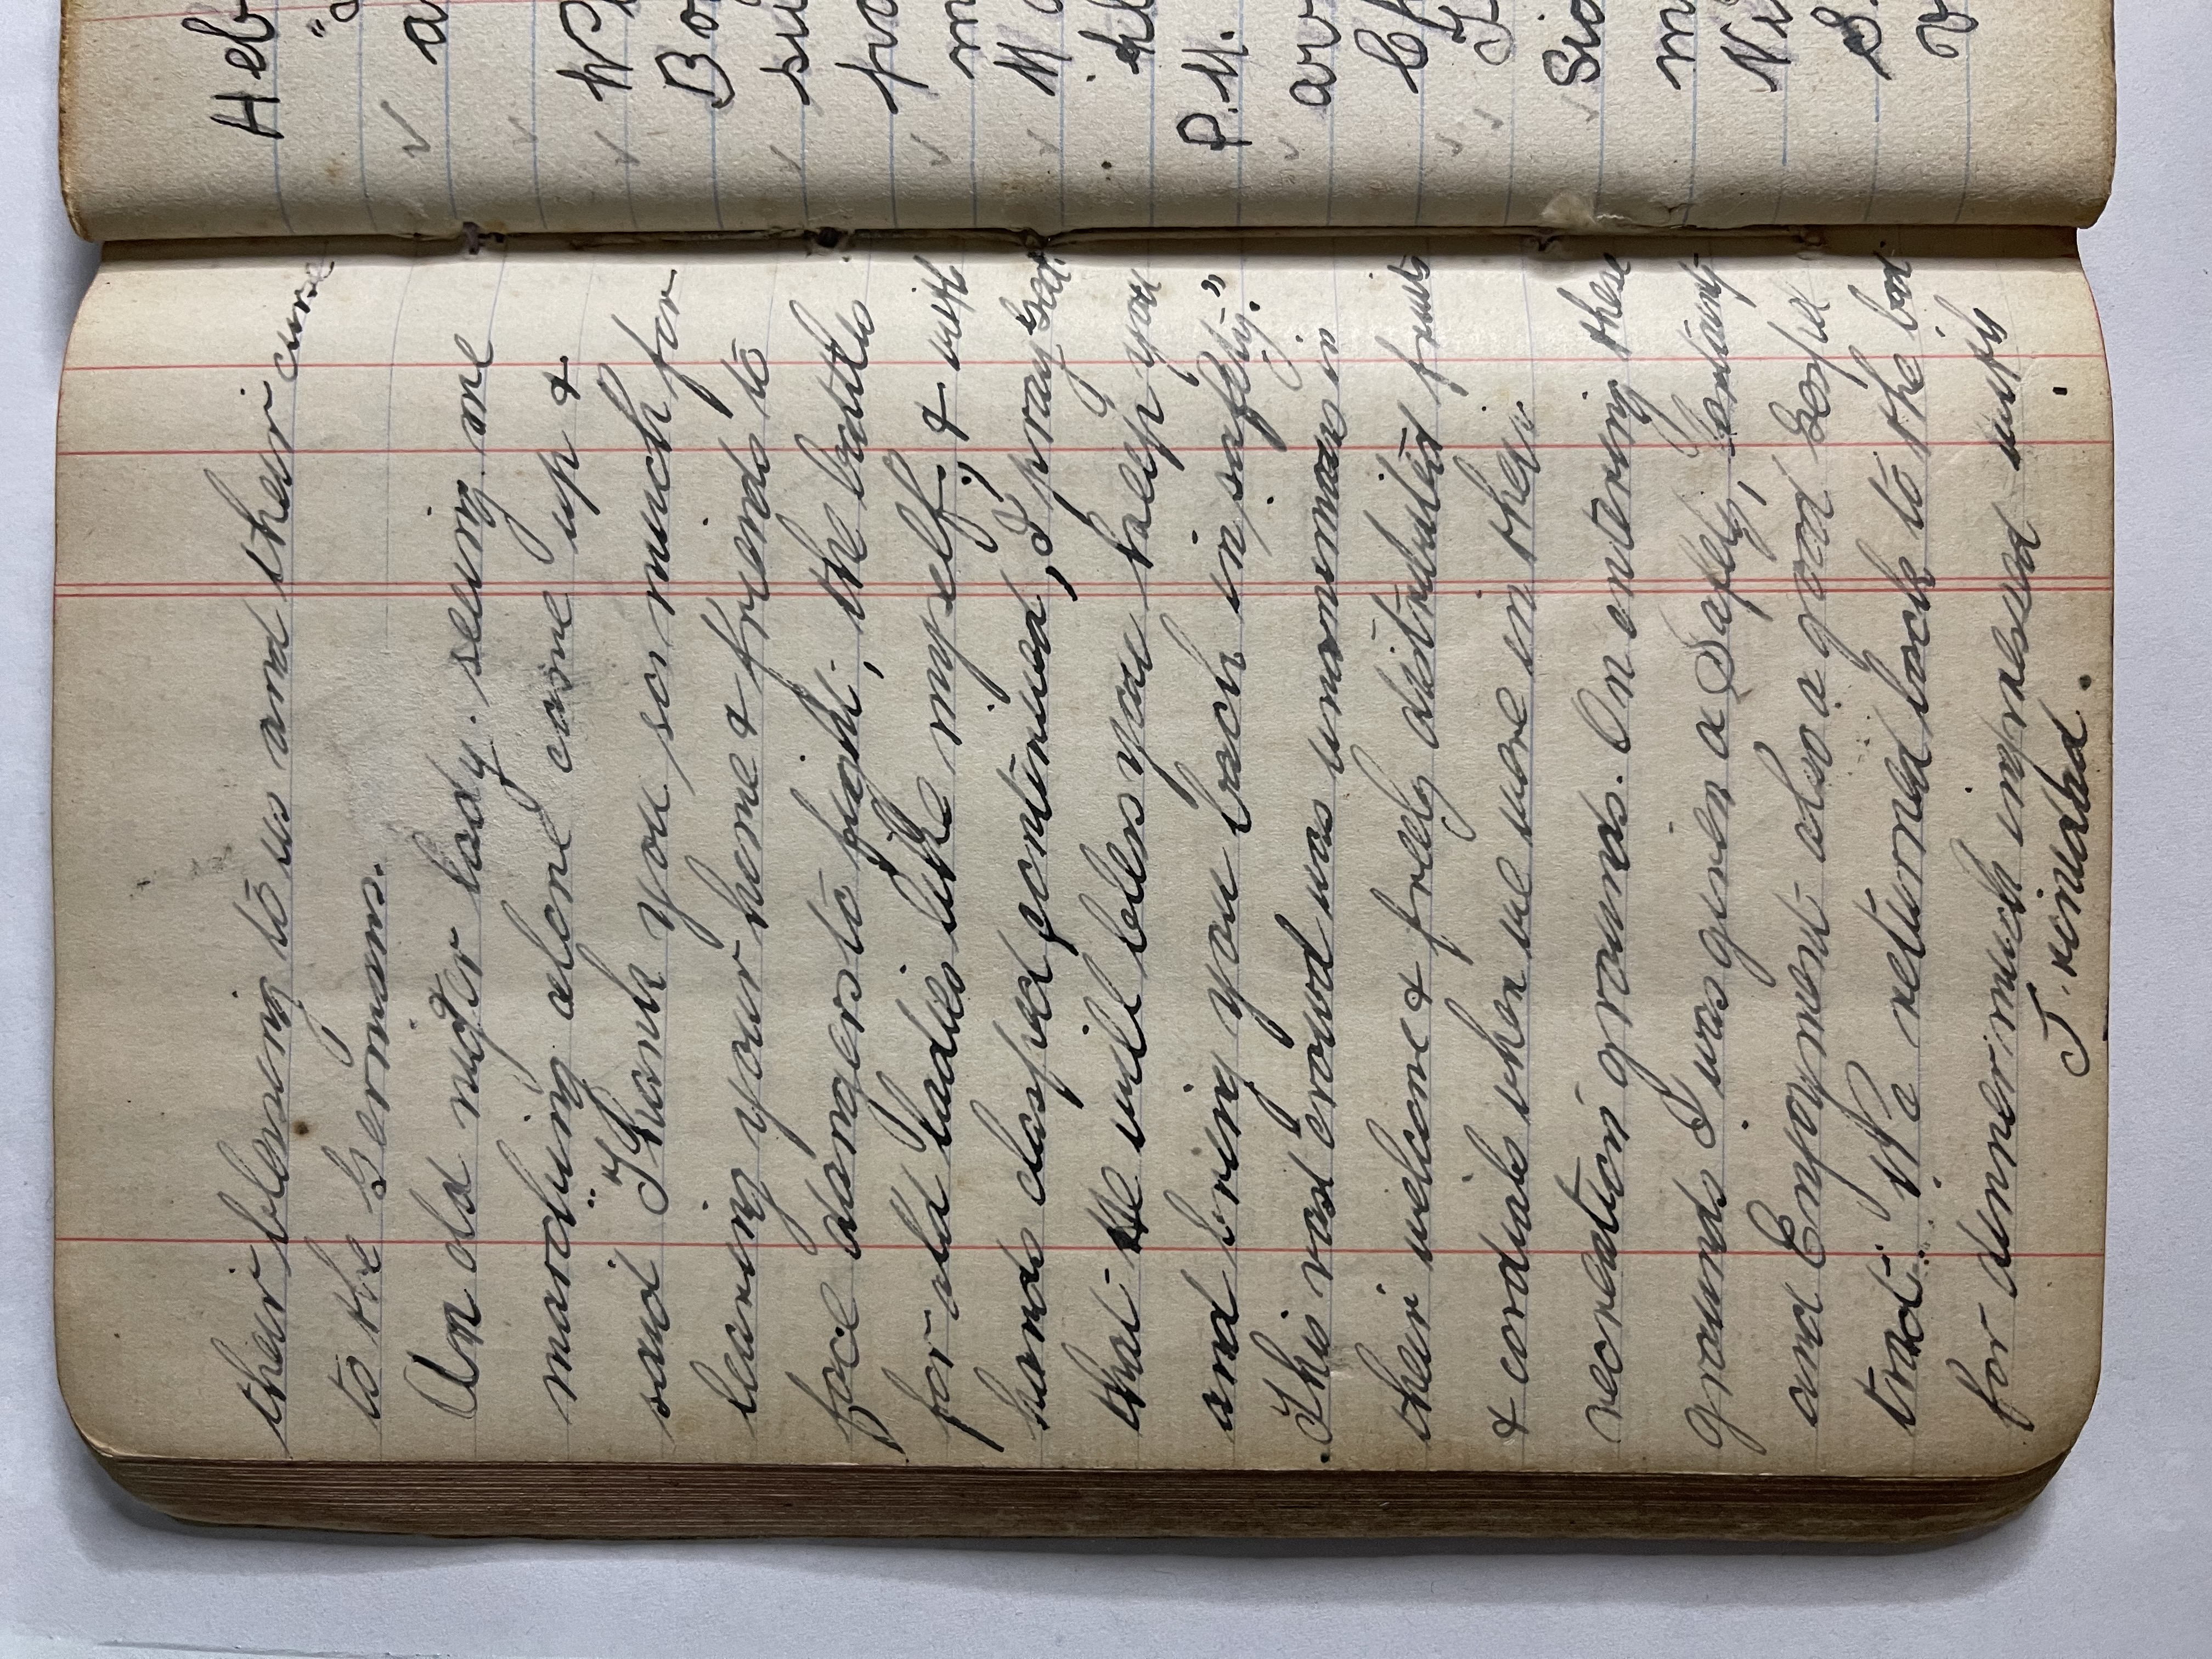 their blessing to us and their curse
to the Germans.
An old lady. seeing me
marching alone came up &
said "Thank you so much for
leaving your home & friends to
face dangers to fight, the battles
for old ladies like myself; & with
hands clasped continued, I pray "God"
that He will bless you keep you
and bring you back in safety."
This vast crowd was unanimous in
their welcome & freely distributed fruits
& cordials when we were in their
recreation grounds. On entering these
grounds I was given a
and Enjoyment also a good Gospel
tract. We returned back to the boat
for dinner much impressed with
Trinidad.
Heb
a
Bo
su
m
P.M.
ar
m
Ni
S.